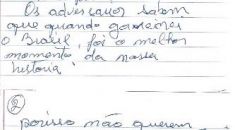 Os adversários sabem
que quando gamei
o Brasil, foi o melhor
momento da nossa
história
②
porisso não querem